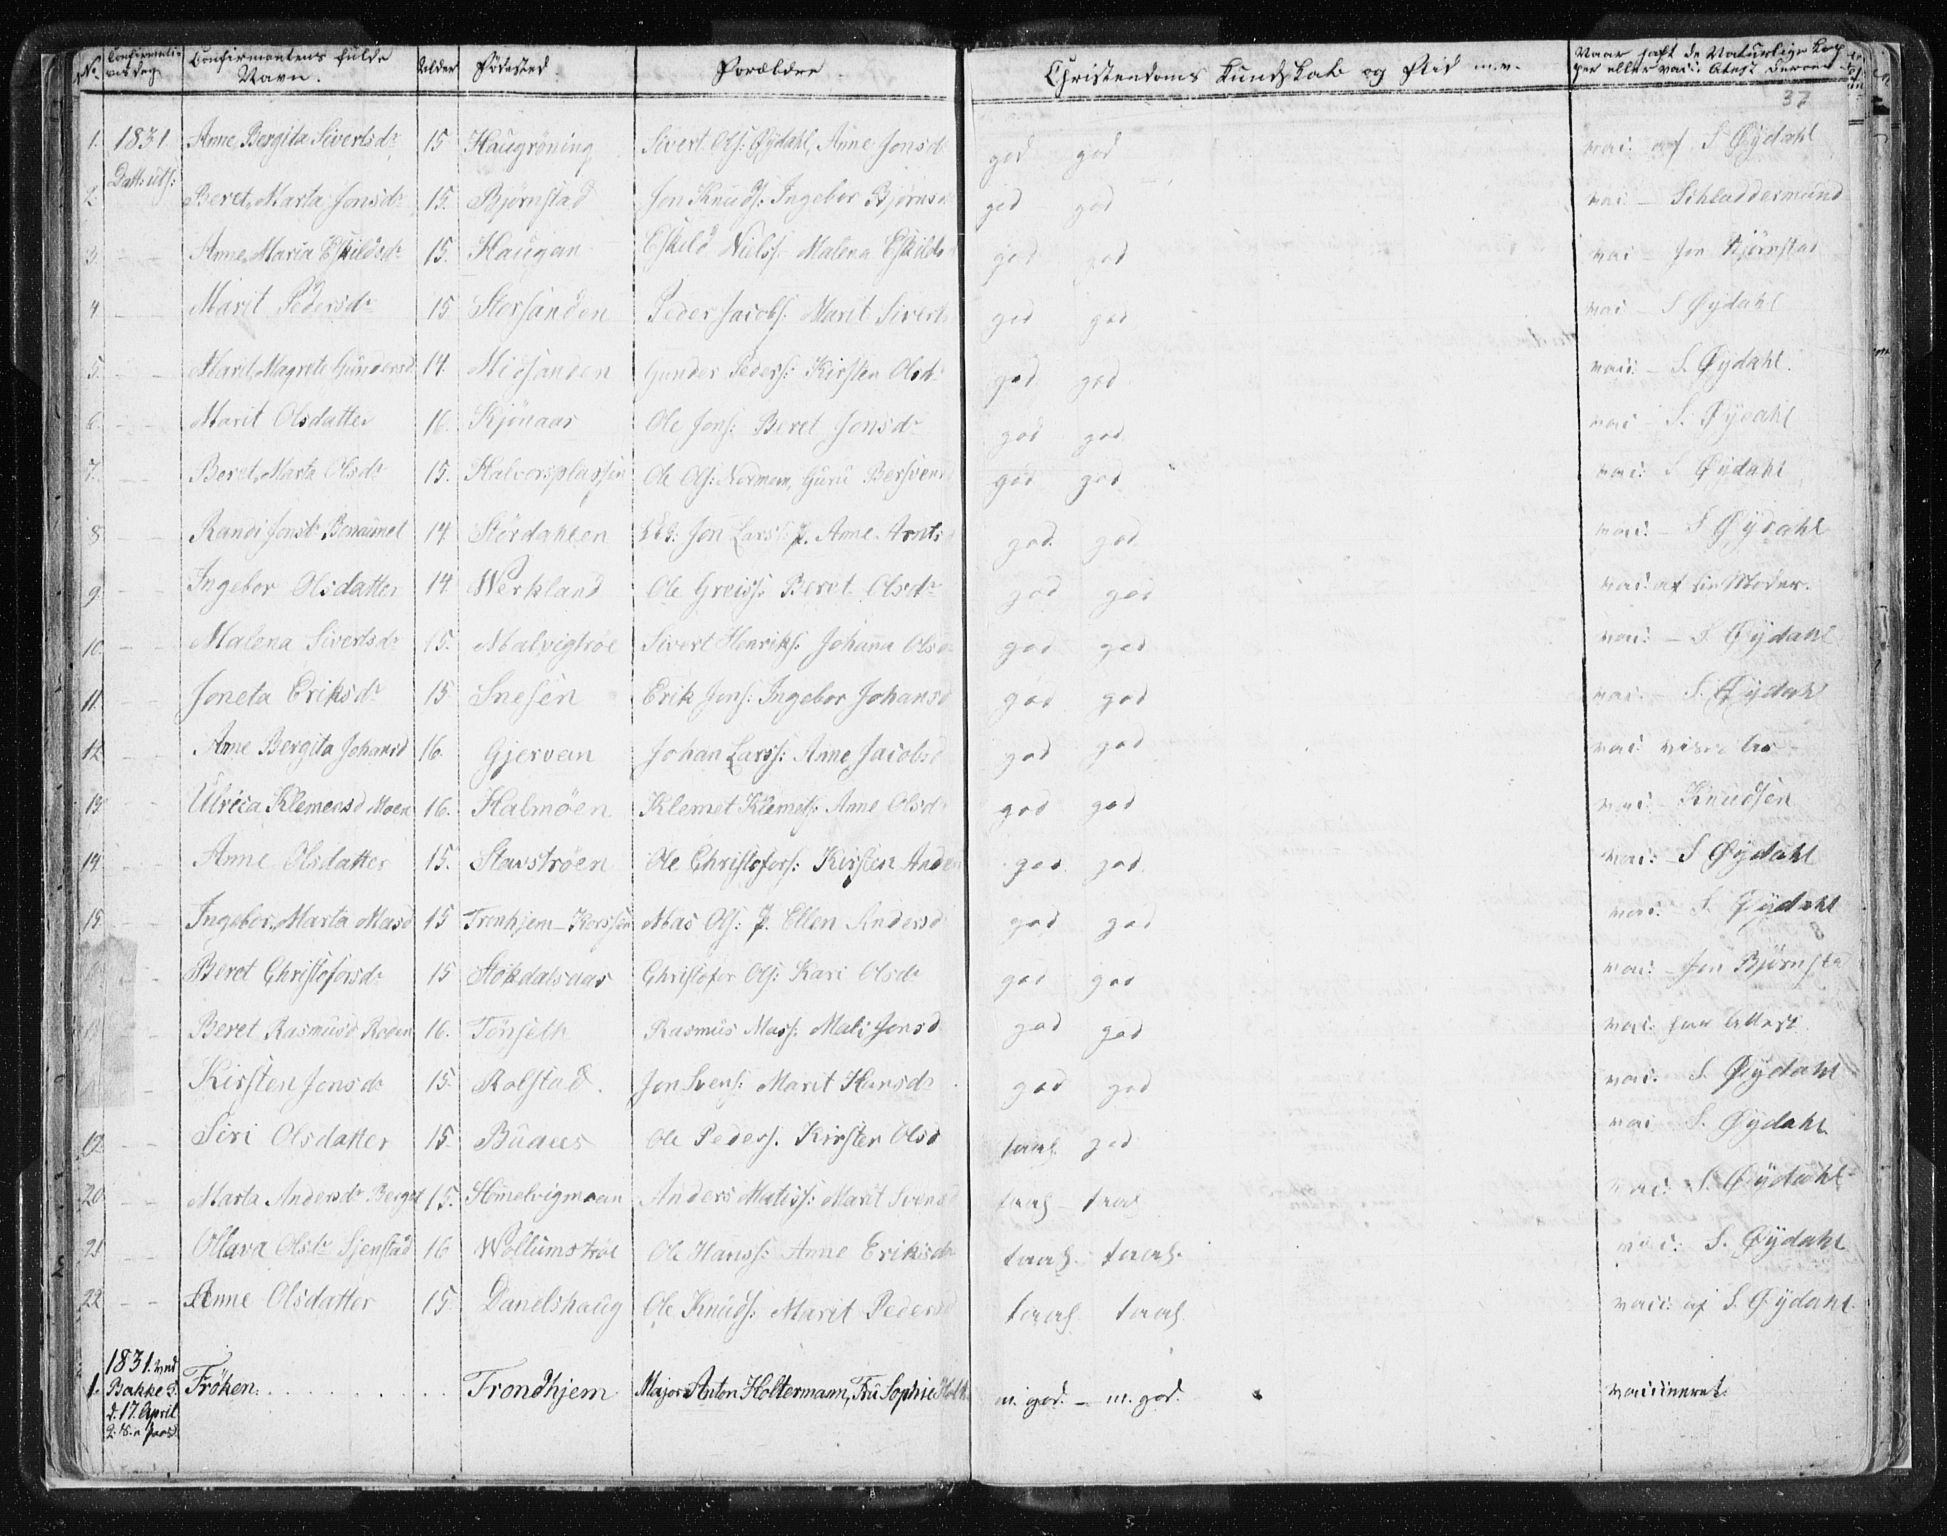 No. Confirmati- Confirmantens fulde Alder Födested. Forældre. Christendoms Kundskab og Flid m.v. Naar haft de Naturlige Kop
ons dag Navn. per eller vacc: Atest derom
37
1. 1831 Anne Bergita Sivertsdr 15 Haugröning Sivert Ols: Øÿdahl, Anne Jonsd god god vac: af S Øÿdahl
2. Beret Marta Jonsdr 15. Björnstad Jon Knuds: Ingebor Björnsd god god vac: – Schladdermund
3. – – Anne Maria Eskildsdr 15. Haugan Eskild Nielss: Malena Eskilds god god vac – Jon Björnstad
4 – – Marit Pedersdr 15 Storsanden Peder Jacobs: Marit Siverts god god vac – S Øÿdahl
5. – – Marit Magrete Gundersd 14. Midsanden Gunder Peders: Kirsten Olsdr god god vac: – S. Øÿdahl.
6. – – Marit Olsdatter 16. Kjönaas Ole Jons: Beret Jonsdr god god vac – S. Øÿdahl
7. – – Beret Marta Olsdr 15. Halvorsplassen Ole Ols: Normann, Guru Bersvens god god vac: S Øÿdahl
8 – – Randi Jonsdr 14 Stördahlen Jon Larss: Anne Arnts god god vac: – S Øÿdahl
9. – – Ingebor Olsdatter 14. Werkland Ole Greiss: Beret Olsdr god god vac: af sin Moder.
10 – – Malena Sivertsdr 15. Malvigtröe Sivert Henriks: Johanna Olsd god god vac: – S. Øÿdahl
11. – – Joneta Eriksdr 15 Snesen Erik Jons: Ingebor Johansd god god vac: – S. Øÿdahl
12. – – Anne Bergita Johansd 16. Gjervan Johan Larss: Anne Jacobsd god god vac:
13 – – Ulrica Klemetsd Moen 16. Halmöen Klemet Klemets: Anne Olsdr god god vac: – Knudsen
14. – – Anne Olsdatter 15. Stavströen Ole Christofers: Kirsten Anders god god vac: – S Øÿdahl
15. – – Ingebor Marta Masd 15 Tronhjem – Mas Ols: Ellen Andersd god god vac: – S. Øÿdahl
– Beret Christofersdr 15 Stokdalsaas Christofer Ols: Kari Olsdr god god vac: – Jon Björnsta
Beret Rasmusd 16. Tönseth Rasmus Mass: Mali Jonsd god god vac: har Attest
– Kirsten Jonsdr 15. Rolstad. Jon Svens: Marit Hansdr god god vac: S. Øÿdahl
19. – – Siri Olsdatter 15. Buaas Ole Peders: Kirsten Olsd taal. god vac S. Øÿdahl
20 – – Marta Andersdr Berget 15. Anders Matiss: Marit Svensd taal – taal vac: S. Øÿdahl
21 – – Ollava Olsdr Sjenstad 16 Wollumströe Ole Hanss: Anne Eriksdr taal. taal. vac: S. Øÿdahl
22 – – Anne Olsdatter 15. Danelshaug Ole Knuds: Marit Pedersd taal. taal. vacc: af S. Øÿdahl.
1831. ved
1. Bakke Fröken. . . . . . . . . . Trondhjem Major Anton Holtermann, Fru Sophie Holt m. god. – m. god. vaccineret.
d. 17. April